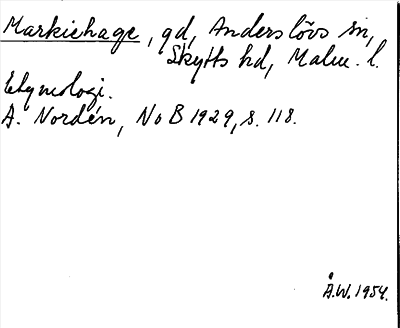 Markiehage, gd, Anderslövs sn,
Skytts hd, Malm. l.
Etymologi.
A. Nordén, NoB 1929, s. 118.
Å.W. 1954.